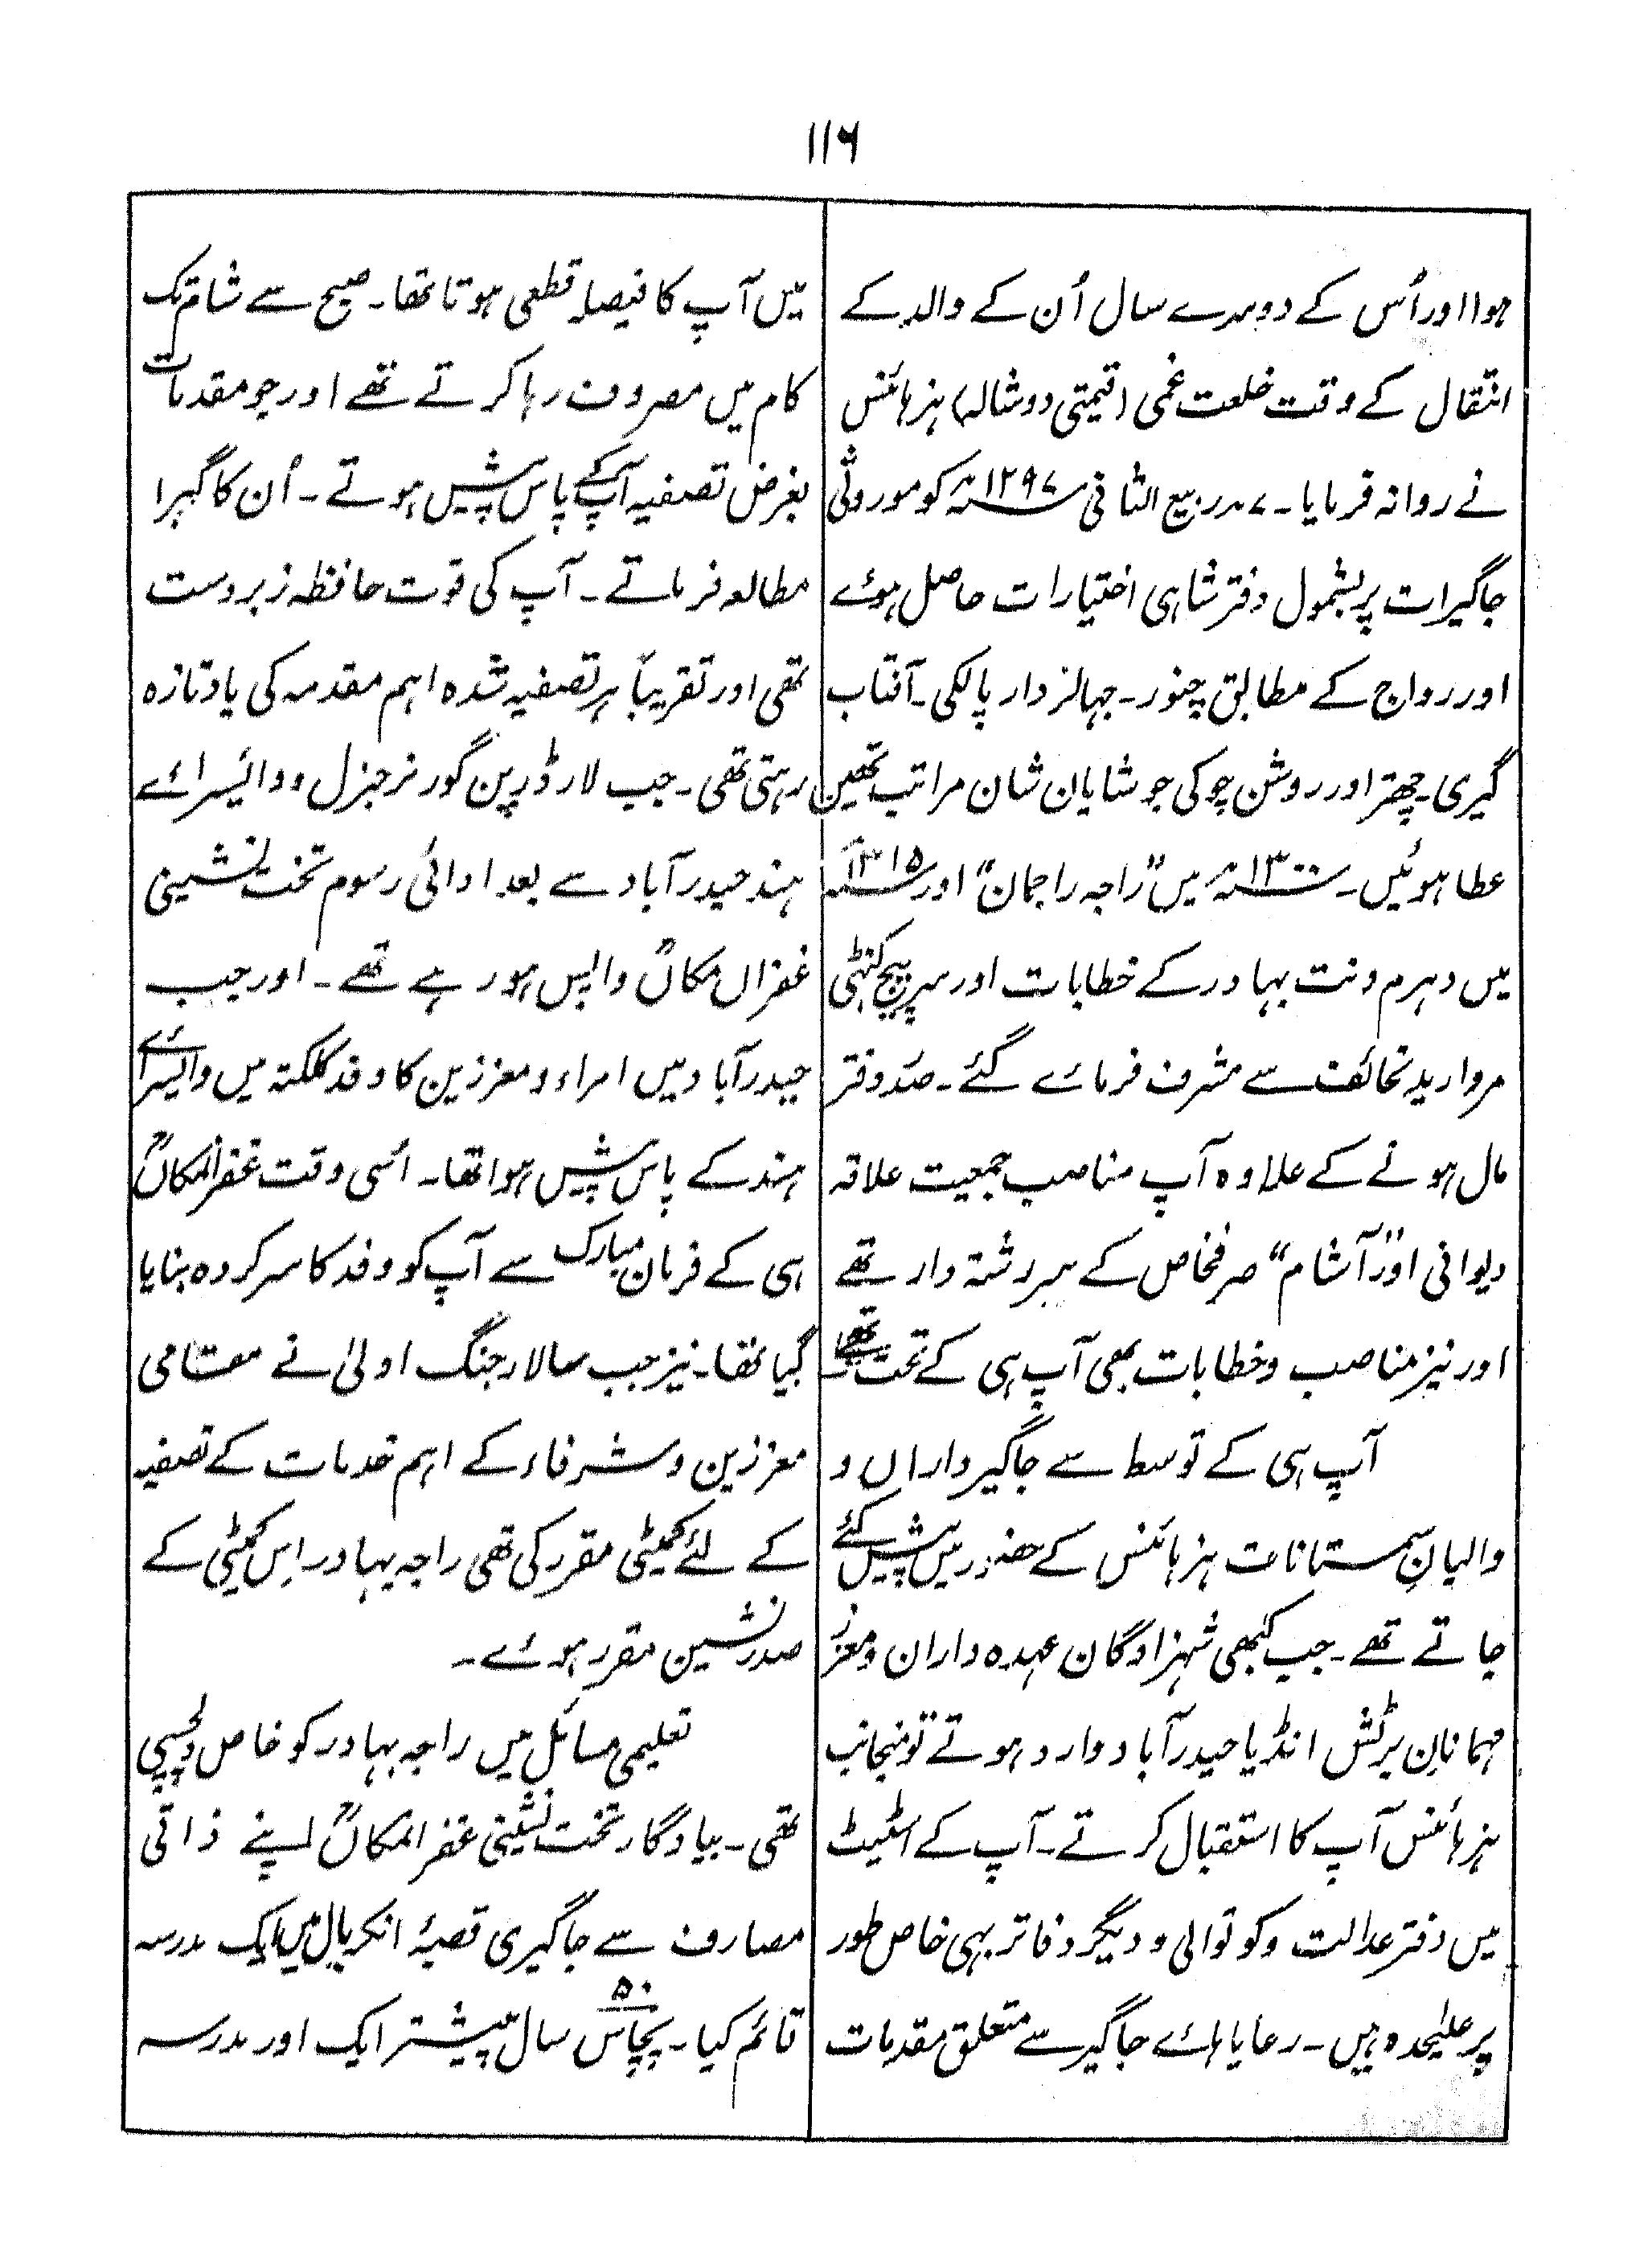 ۱۱۶
ہوا اور اُس کے دوسرے سال اُن کے والد کے
انتقال کے وقت خلعت غمی (قیمتی دوشالہ) ہزہائنس
نے روانہ فرمایا۔ ۷؍ ربیع الثانی ۱۲۹۷ھ کو موروثی
جاگیرات پر بشمول دفتر شاہی اختیارات حاصل ہوئے
اور رواج کے مطابق چنور۔ جہالردار پالکی۔ آفتاب
گیری۔ چھتر اور روشن چوکی جو شایان شان مراتب تھین
عطا ہوئیں۔ ۱۳۰۰ھ میں ”راجہ راجمان“ اور ۱۳۱۵ھ
میں دہرم ونت بہادر کے خطابات اور سرپیچ کنٹی
مروارید تحائف سے مشرف فرمائے گئے۔ صدر دفتر
مال ہونے کے علاوہ آپ مناصب جمعیت علاقہ
دیوانی اور ”آشام“ صرفخاص کے سررشتہ دار تھے
اور نیز مناصب وخطابات بھی آپ ہی کے تحت تھے۔
آپ ہی کے توسط سے جاگیرداراں و
والیانِ سمستانات ہزہائنس کے حضور میں پیش کئے
جاتے تھے۔ جب کبھی شہزادگان عہدہ داران و معزز
مہمانانِ برٹش انڈیا حیدرآباد وارد ہوتے تو منجانب
ہزہائنس آپ کا استقبال کرتے۔ آپ کے اسٹیٹ
میں دفتر عدالت وکوتوالی و دیگر دفاتر بھی خاص طور
پر علیٰحدہ ہیں۔ رعایا ہائے جاگیر سے متعلق مقدمات
میں آپ کا فیصلہ قطعی ہوتا تھا۔ صبح سے شام تک
کام میں مصروف رہا کرتے تھے اور جو مقدمات
بغرض تصفیہ آپ کے پاس پیش ہوتے۔ اُن کا گہرا
مطالعہ فرماتے۔ آپ کی قوت حافظہ زبردست
تھی اور تقریباً ہر تصفیہ شدہ اہم مقدمہ کی یاد تازہ
رہتی تھی۔ جب لارڈ رپن گورنر جنرل ووائسرائے
ہند حیدرآباد سے بعد ادائی رسوم تخت نشینی
غفراں مکانؒ واپس ہورہے تھے۔ اور جب
حیدرآباد میں امراء ومعززین کا وفد کلکتہ میں وائسرائے
ہند کے پاس پیش ہوا تھا۔ اُسی وقت غفرالمکانؒ
ہی کے فرمان مبارک سے آپ کو وفد کا سرکردہ بنایا
گیا تھا۔ نیز جب سالارجنگ اولیٰ نے مقامی
معززین وشرفاء کے اہم خدمات کے تصفیہ
کے لئے کمیٹی مقرر کی تھی راجہ بہادر اِس کمیٹی کے
صدر نشین مقرر ہوئے۔
تعلیمی مسائل میں راجہ بہادر کو خاص دلچسپی
تھی۔ بیادگار تخت نشینی غفرالمکانؒ اپنے ذاتی
مصارف سے جاگیری قصبۂ انکریال میں ایک مدرسہ
قائم کیا۔ پچاس ۵۰ سال پیشتر ایک اور مدرسہ